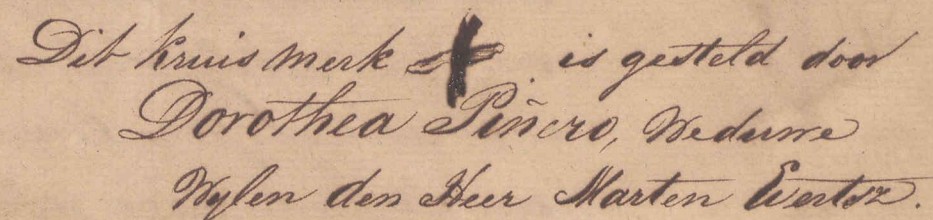 Dit kruis merk is gesteld door
Dorothea Piñero, Weduwe
Wylen den Heer Marten Evertsz.